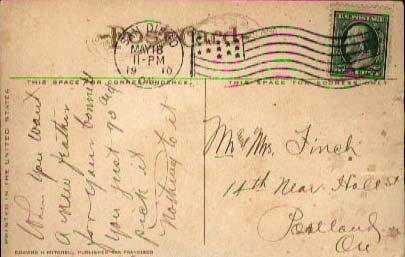 Post Card
MAY 18
11-PM
19 10
U.S. POSTAGE
THIS SPACE FOR CORRESPONDENCE.
THIS SPACE FOR ADDRESS ONLY
PRINTED IN THE UNITED STATES
When you want
a new feather
for your bonnet
you just go and
pick it
nothing to it
Mr & Mrs. Finch
14th Near Hall St
Portland
Ore
EDWARD H. MITCHELL, PUBLISHER SAN FRANCISCO